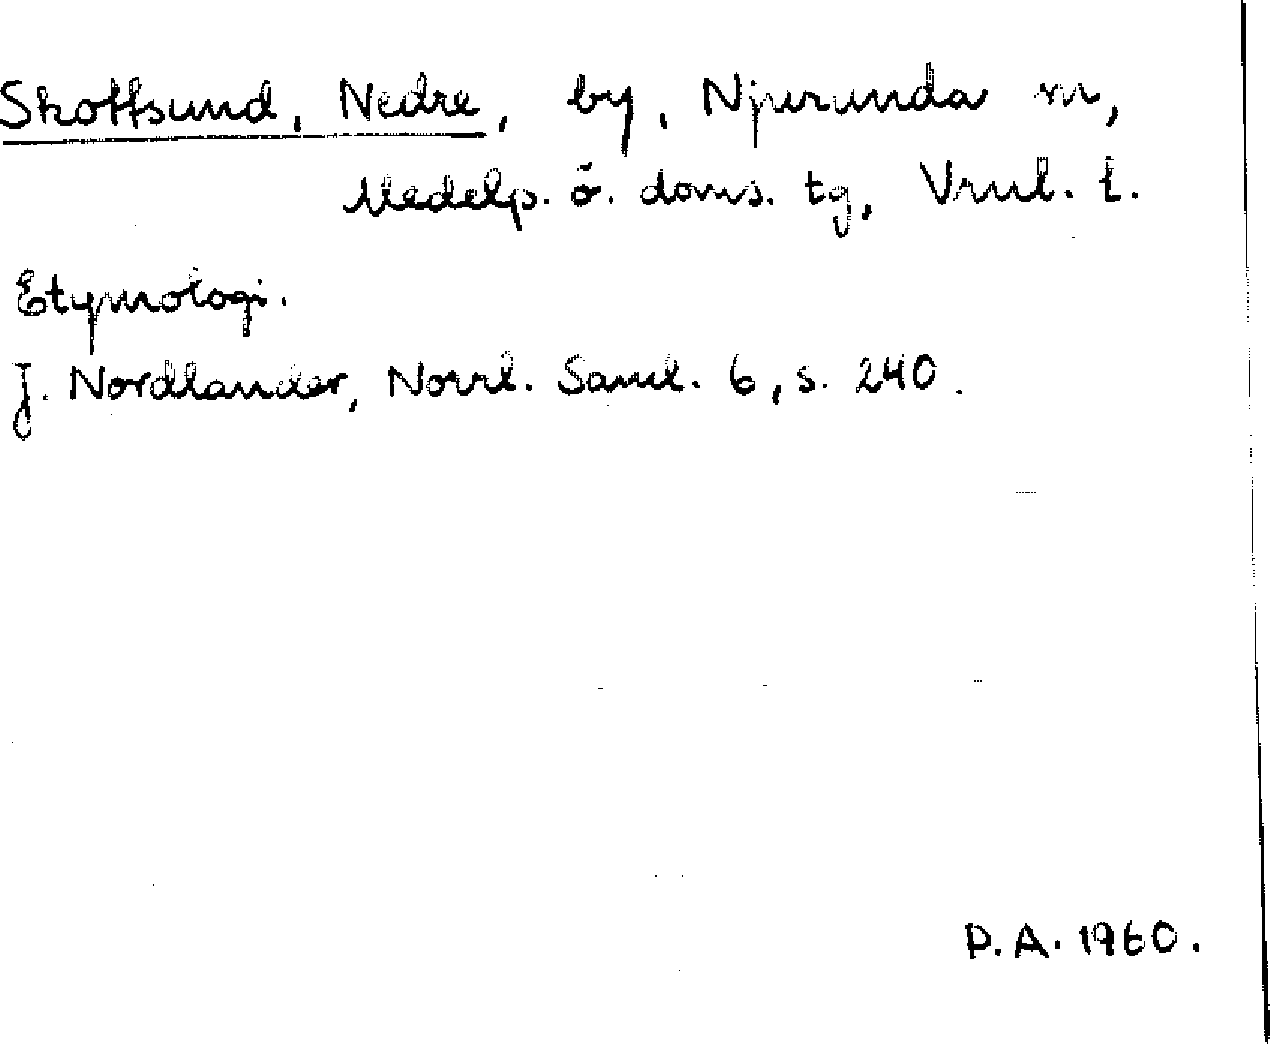 Skottsund, Nedre, by, Njurunda sn,
Medelp. ö. doms. tg, Vnl. l.
Etymologi.
J. Nordlander, Norrl. Saml. 6, s. 240.
D.A. 1960.